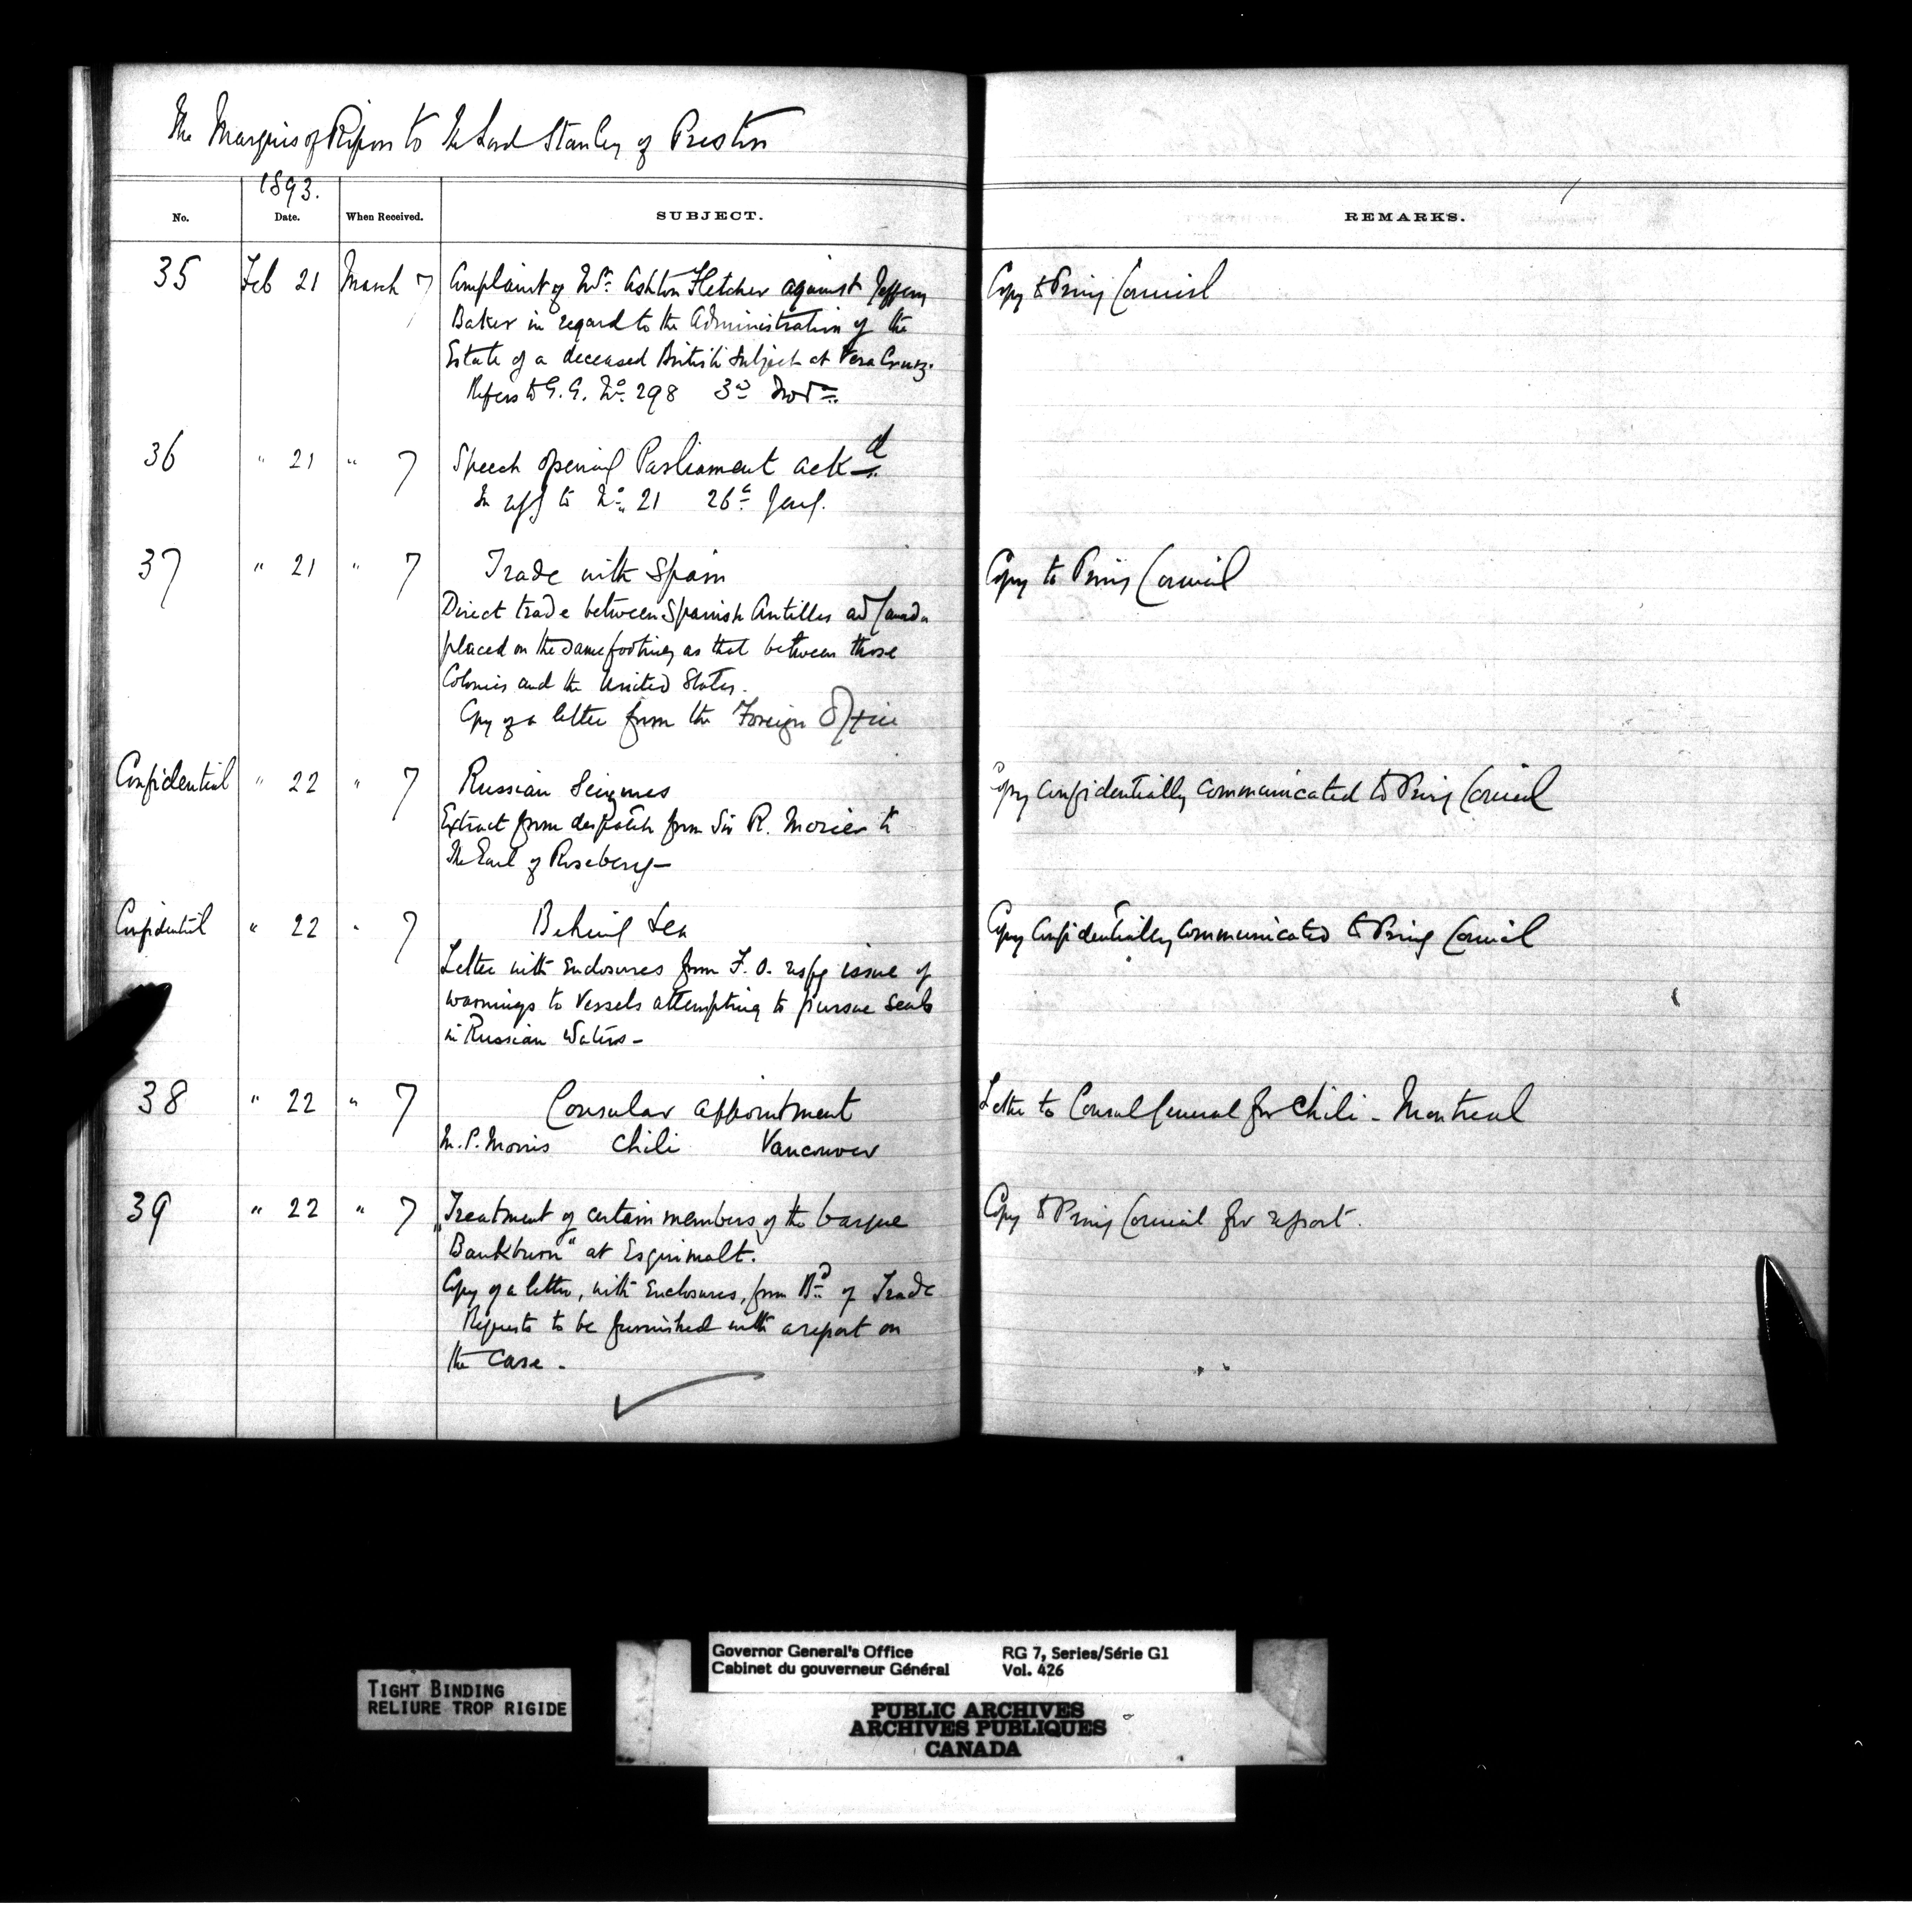 The Marquis of Ripon to The Lord Stanley of Preston
1893.
No. Date. When Received. SUBJECT. REMARKS.
35 Feb 21 March 7 Complaint of Mr. Ashton Fletcher against Jeffery Copy to Privy Council
Baker in regard to the Administration of the
Estate of a deceased British subject at Vera Cruz.
Refers to G. G. No. 298 3d Novr.
36 " 21 " 7 Speech opening Parliament ackd.
In reply to No. 21 26th Jany.
37 " 21 " 7 Trade with Spain Copy to Privy Council
Direct trade between Spanish Antilles and Canada
placed on the same footing as that between those
Colonies and the United States.
Copy of a letter from the Foreign Office
Confidential " 22 " 7 Russian Seizures Copy confidentially communicated to Privy Council
Extract from despatch from Sir R. Morier to
The Earl of Rosebery —
Confidential " 22 " 7 Behring Sea Copy confidentially communicated to Privy Council
Letter with Enclosures from F. O. respg issue of
warnings to Vessels attempting to pursue seals
in Russian Waters —
38 " 22 " 7 Consular appointment Letter to Consul General for Chili - Montreal
M. P. Morris Chili Vancouver
39 " 22 " 7 Treatment of certain members of the barque Copy to Privy Council for report.
"Bankburn" at Esquimalt.
Copy of a letter, with Enclosures, from Bd. of Trade
Requests to be furnished with a report on
the case -
Governor General's Office RG 7, Series/Série G1
Cabinet du gouverneur Général Vol. 426
TIGHT BINDING
RELIURE TROP RIGIDE
PUBLIC ARCHIVES
ARCHIVES PUBLIQUES
CANADA